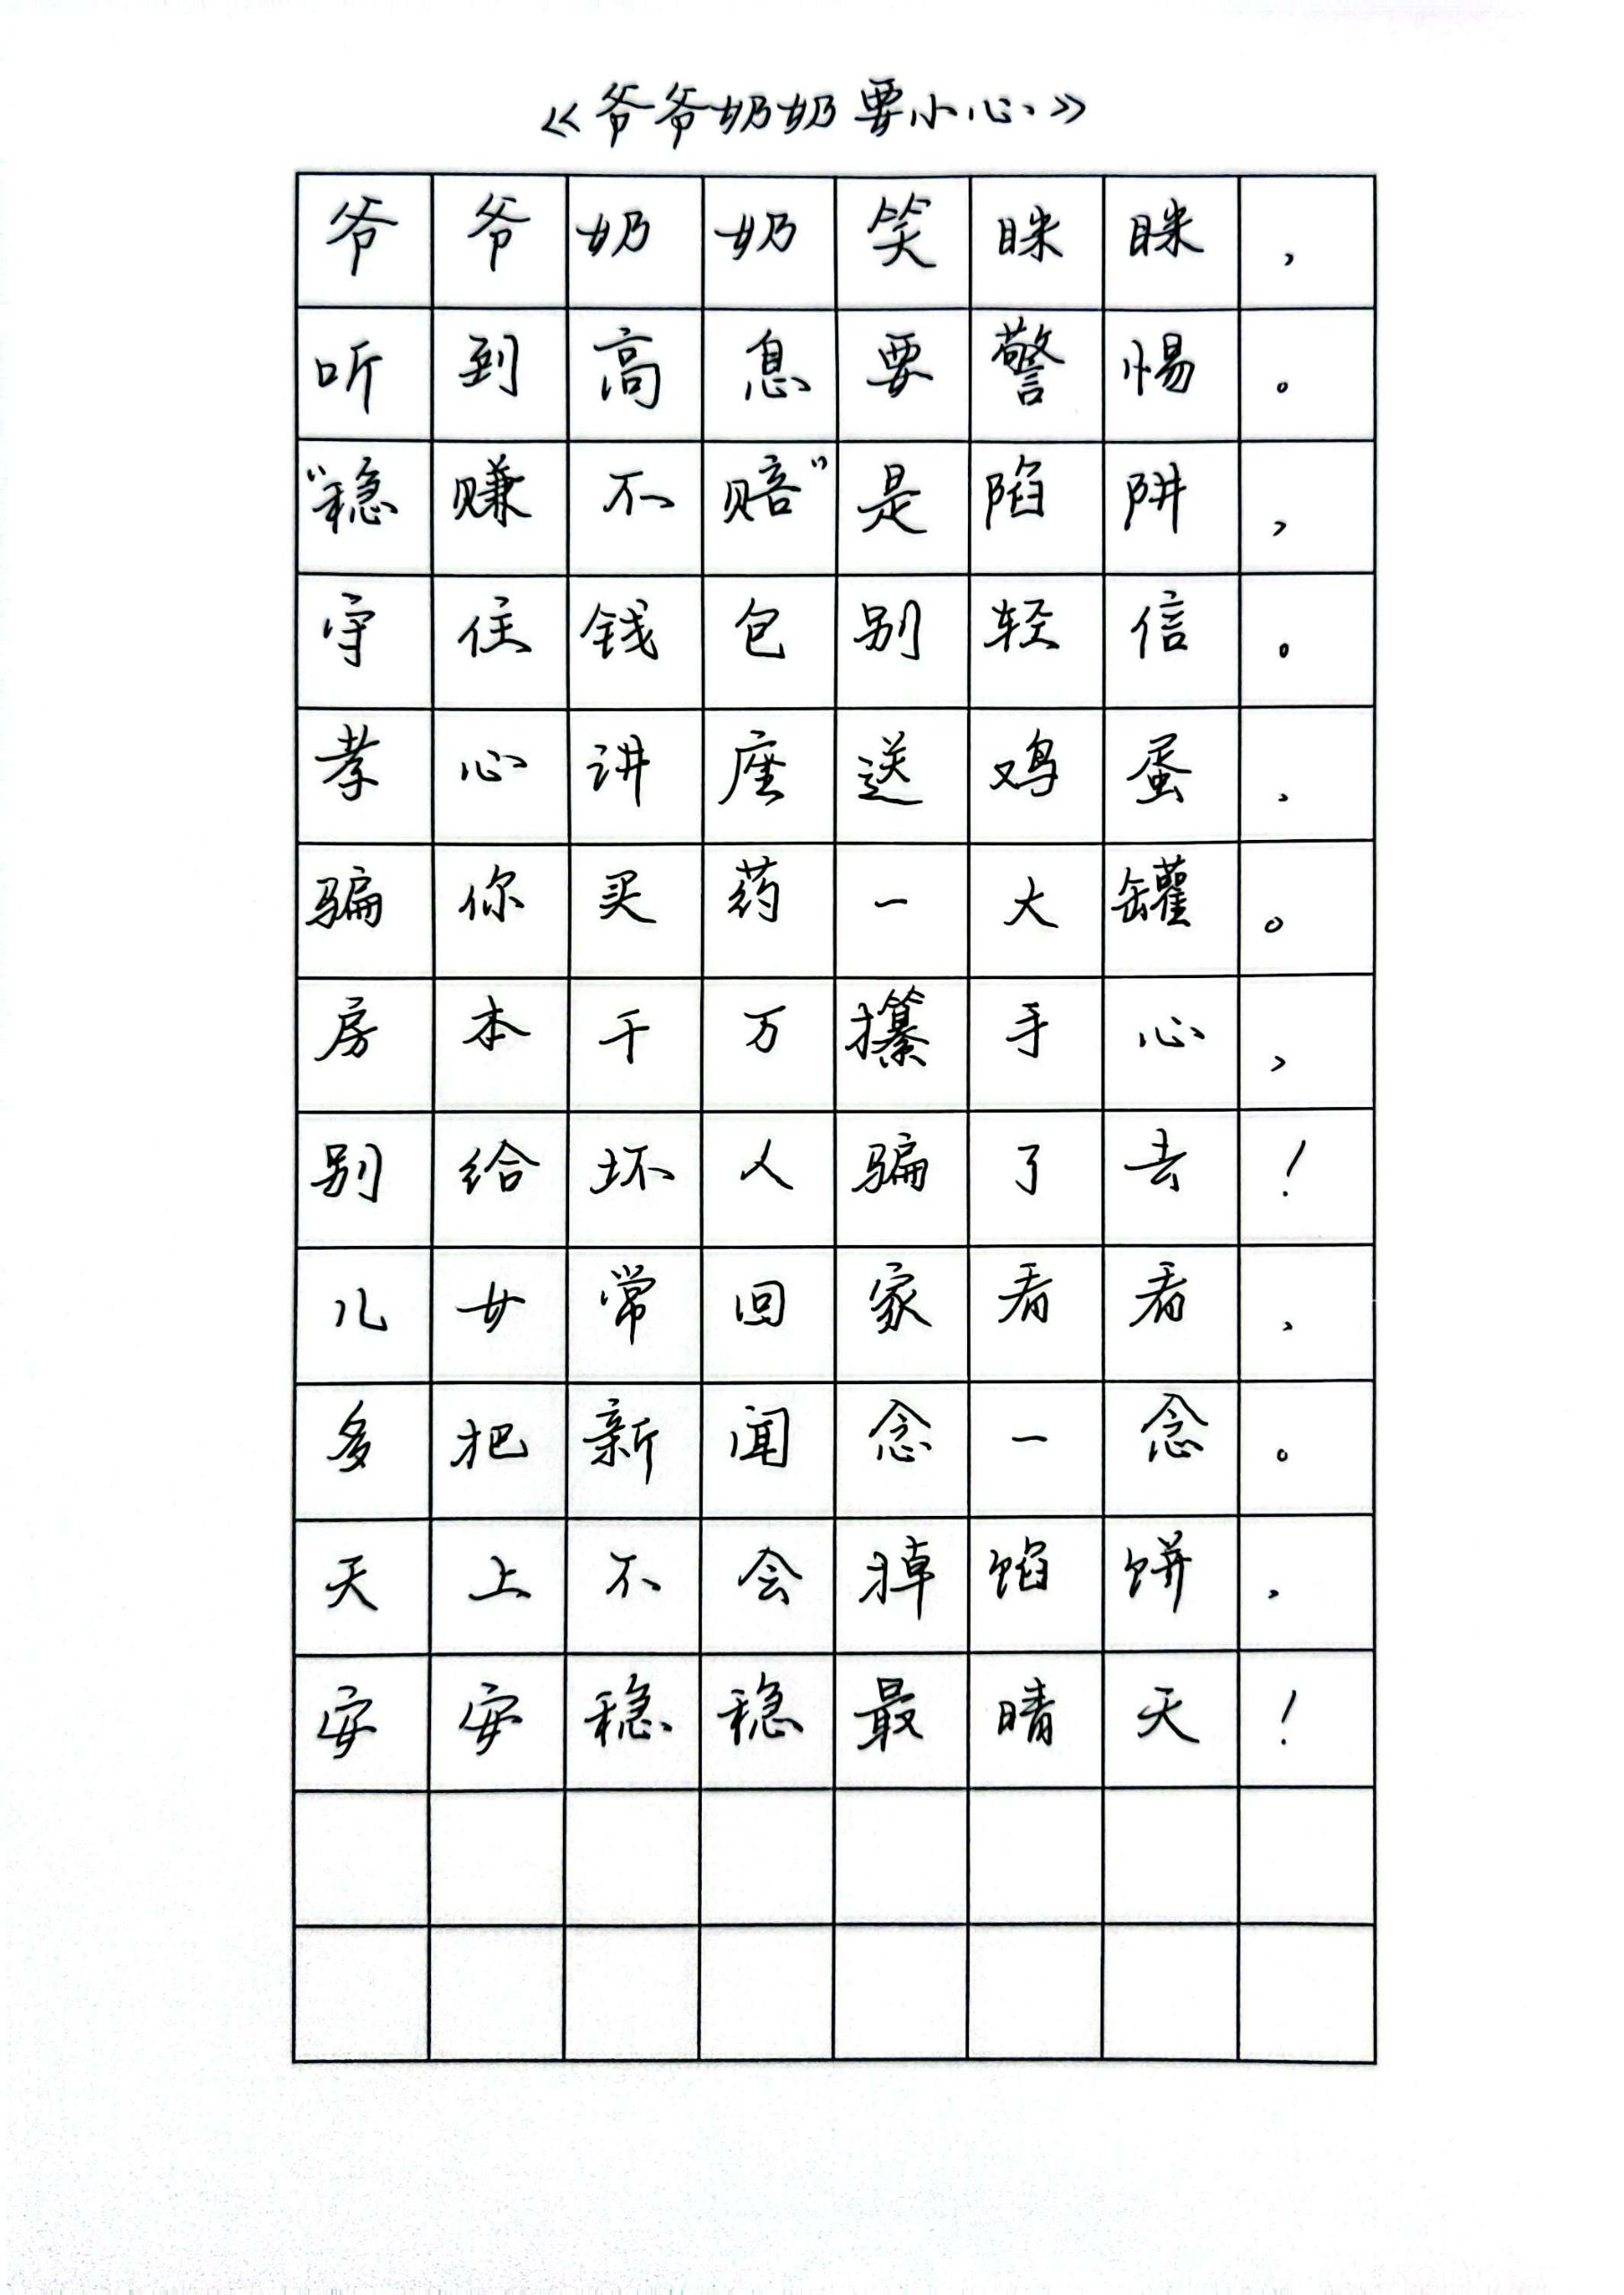 《爷爷奶奶要小心》
爷爷奶奶笑眯眯，
听到高息要警惕。
“稳赚不赔”是陷阱，
守住钱包别轻信。
孝心讲座送鸡蛋，
骗你买药一大罐。
房本千万攥手心，
别给坏人骗了去！
儿女常回家看看，
多把新闻念一念。
天上不会掉馅饼，
安安稳稳最晴天！